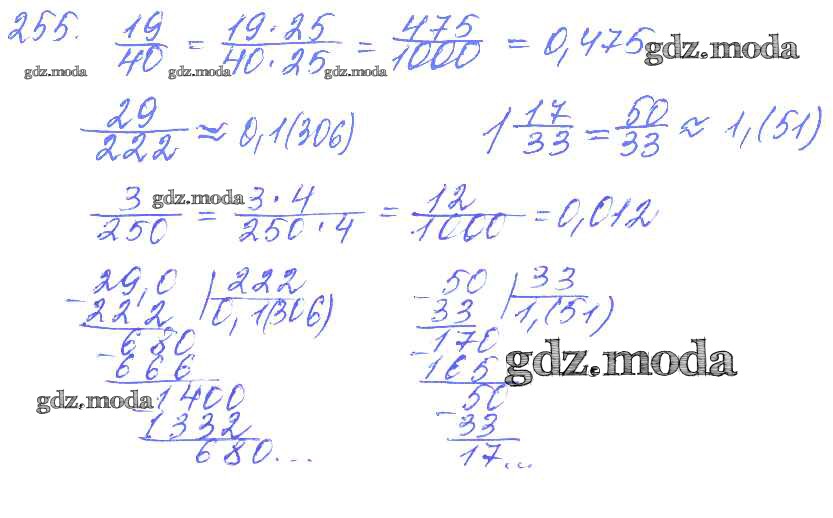 255. 19/40 = 19·25/40·25 = 475/1000 = 0,475
gdz.moda gdz.moda gdz.moda gdz.moda
29/222 ≈ 0,1(306) 1 17/33 = 50/33 ≈ 1,(51)
gdz.moda
3/250 = 3·4/250·4 = 12/1000 = 0,012
29,0 | 222 50 | 33
- 222 0,1(306) - 33 1,(51)
680 170
- 666 - 165
gdz.moda
gdz.moda 1400 50
- 1332 - 33
680... 17...